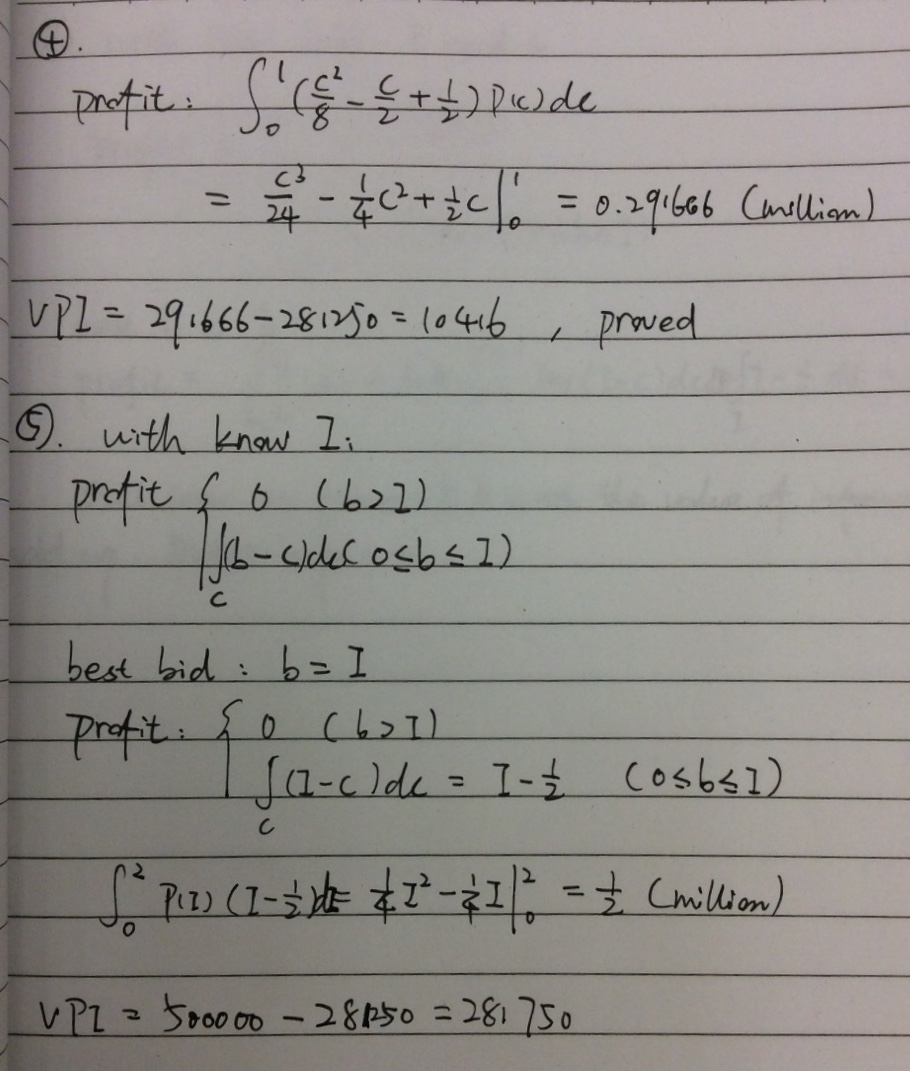 ④.
profit: ∫₀¹ (c²/8 - c/2 + 1/2) P(c) dc
= c³/24 - 1/4 c² + 1/2 c |₀¹ = 0.291666 (million)
VPI = 291666 - 281250 = 10416 , proved
⑤. with know I:
profit { 0 (b>I)
∫(b-c)dc ( 0≤b≤I)
c
best bid : b = I
profit: { 0 (b>I)
∫(I-c)dc = I - 1/2 (0≤b≤I)
c
∫₀² P(I) (I-1/2)dI= 1/4 I² - 1/4 I |₀² = 1/2 (million)
VPI = 500000 - 281250 = 281750